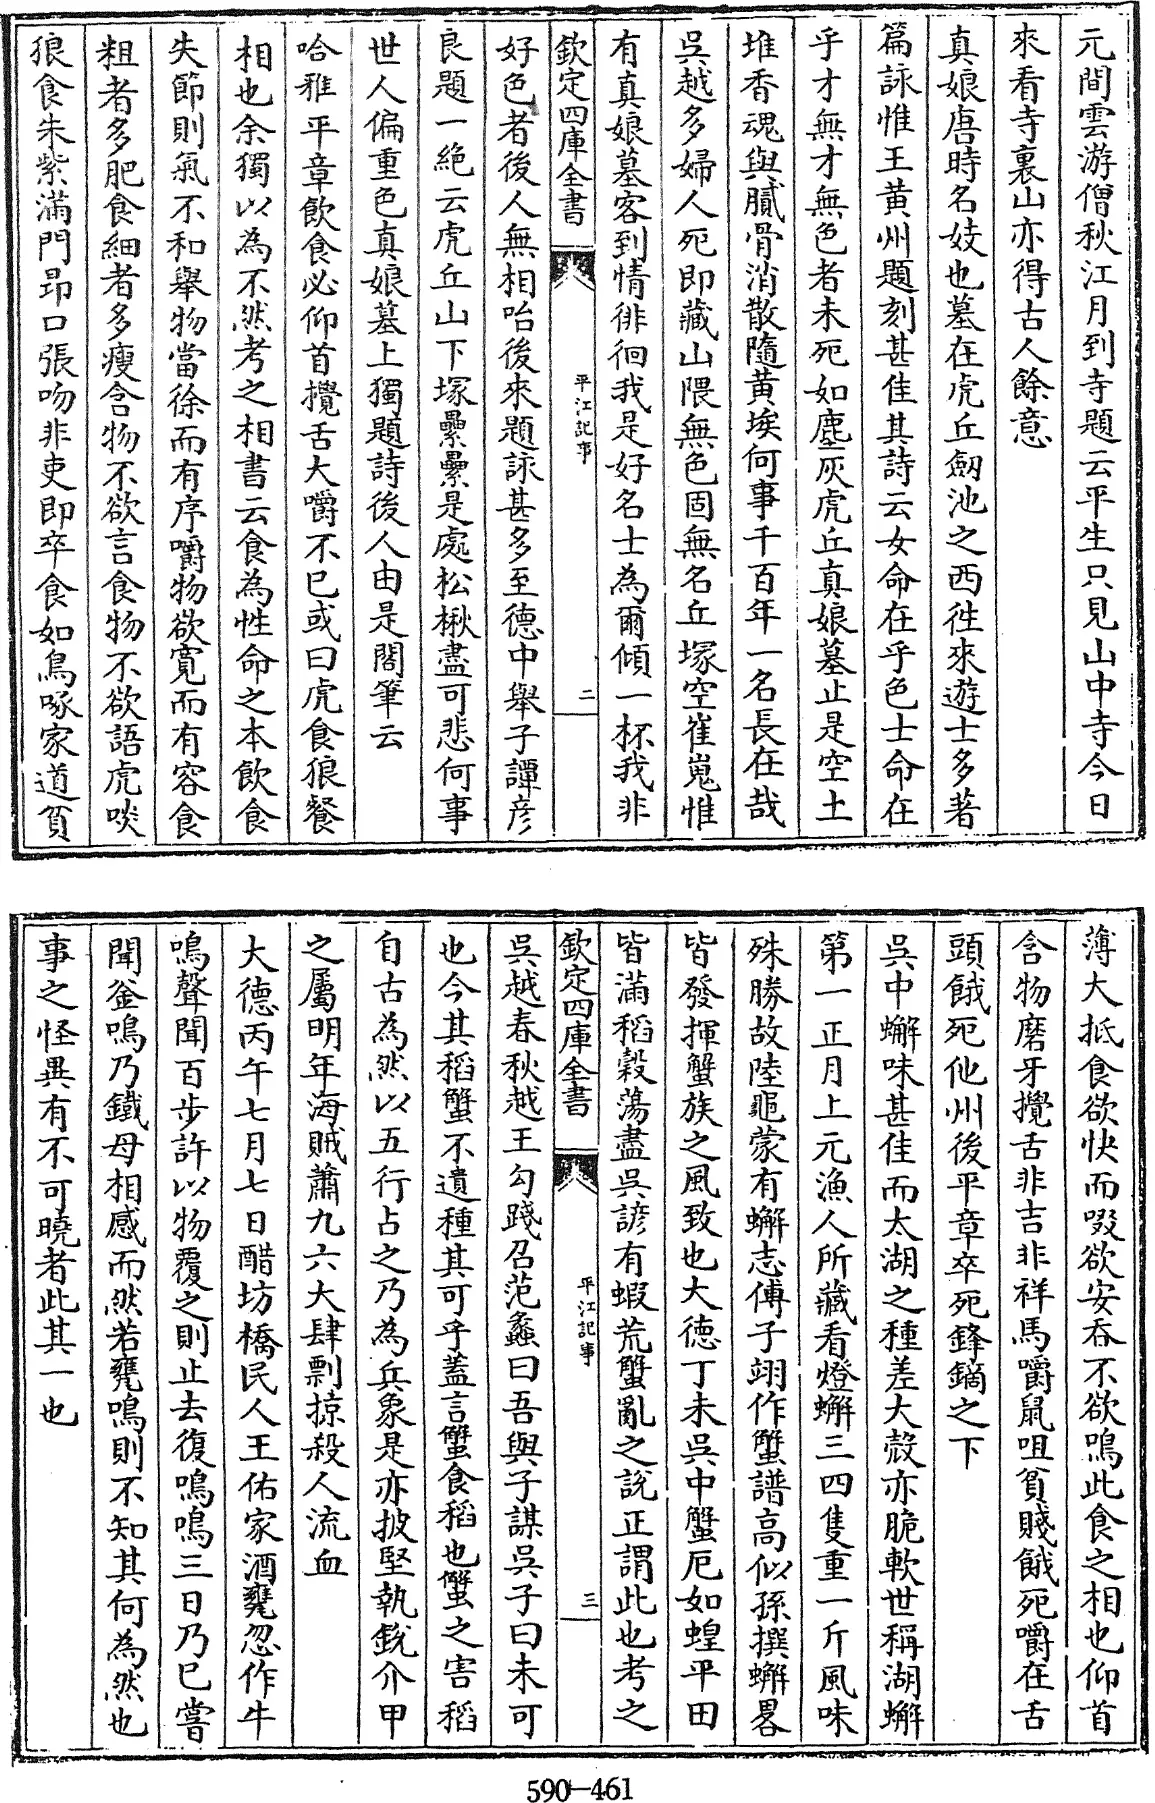 元間雲游僧秋江月到寺題云平生只見山中寺今日
來看寺裏山亦得古人餘意
真娘唐時名妓也墓在虎丘劒池之西徃來遊士多著
篇詠惟王黄州題刻甚佳其詩云女命在乎色士命在
乎才無才無色者未死如塵灰虎丘真娘墓止是空土
堆香魂與膩骨消散隨黄埃何事千百年一名長在哉
吳越多婦人死即藏山隈無色固無名丘塚空崔嵬惟
有真娘墓客到情徘徊我是好名士為爾傾一杯我非
欽定四庫全書
平江記事
二
好色者後人無相咍後來題詠甚多至德中舉子譚彦
良題一絶云虎丘山下塚纍纍是處松楸盡可悲何事
世人偏重色真娘墓上獨題詩後人由是閣筆云
哈雅平章飲食必仰首攪舌大嚼不已或曰虎食狼餐
相也余獨以為不然考之相書云食為性命之本飲食
失節則氣不和舉物當徐而有序嚼物欲寛而有容食
粗者多肥食細者多瘦含物不欲言食物不欲語虎啖
狼食朱紫滿門昻口張吻非吏即卒食如鳥啄家道貧
薄大抵食欲快而啜欲安吞不欲鳴此食之相也仰首
含物磨牙攪舌非吉非祥馬嚼鼠咀貧賤餓死嚼在舌
頭餓死他州後平章卒死鋒鏑之下
吳中蠏味甚佳而太湖之種差大殻亦脆軟世稱湖蠏
第一正月上元漁人所藏看燈蠏三四隻重一斤風味
殊勝故陸龜蒙有蠏志傅子翊作蟹譜高似孫撰蠏畧
皆發揮蟹族之風致也大德丁未吳中蟹厄如蝗平田
皆滿稻穀蕩盡吳諺有蝦荒蟹亂之說正謂此也考之
欽定四庫全書
平江記事
三
吳越春秋越王勾踐召范蠡曰吾與子謀吳子曰未可
也今其稻蟹不遺種其可乎蓋言蟹食稻也蟹之害稻
自古為然以五行占之乃為兵象是亦披堅執銳介甲
之屬明年海賊蕭九六大肆剽掠殺人流血
大德丙午七月七日醋坊橋民人王佑家酒甕忽作牛
鳴聲聞百步許以物覆之則止去復鳴鳴三日乃已嘗
聞釡鳴乃鐵母相感而然若甕鳴則不知其何為然也
事之怪異有不可曉者此其一也
590-461